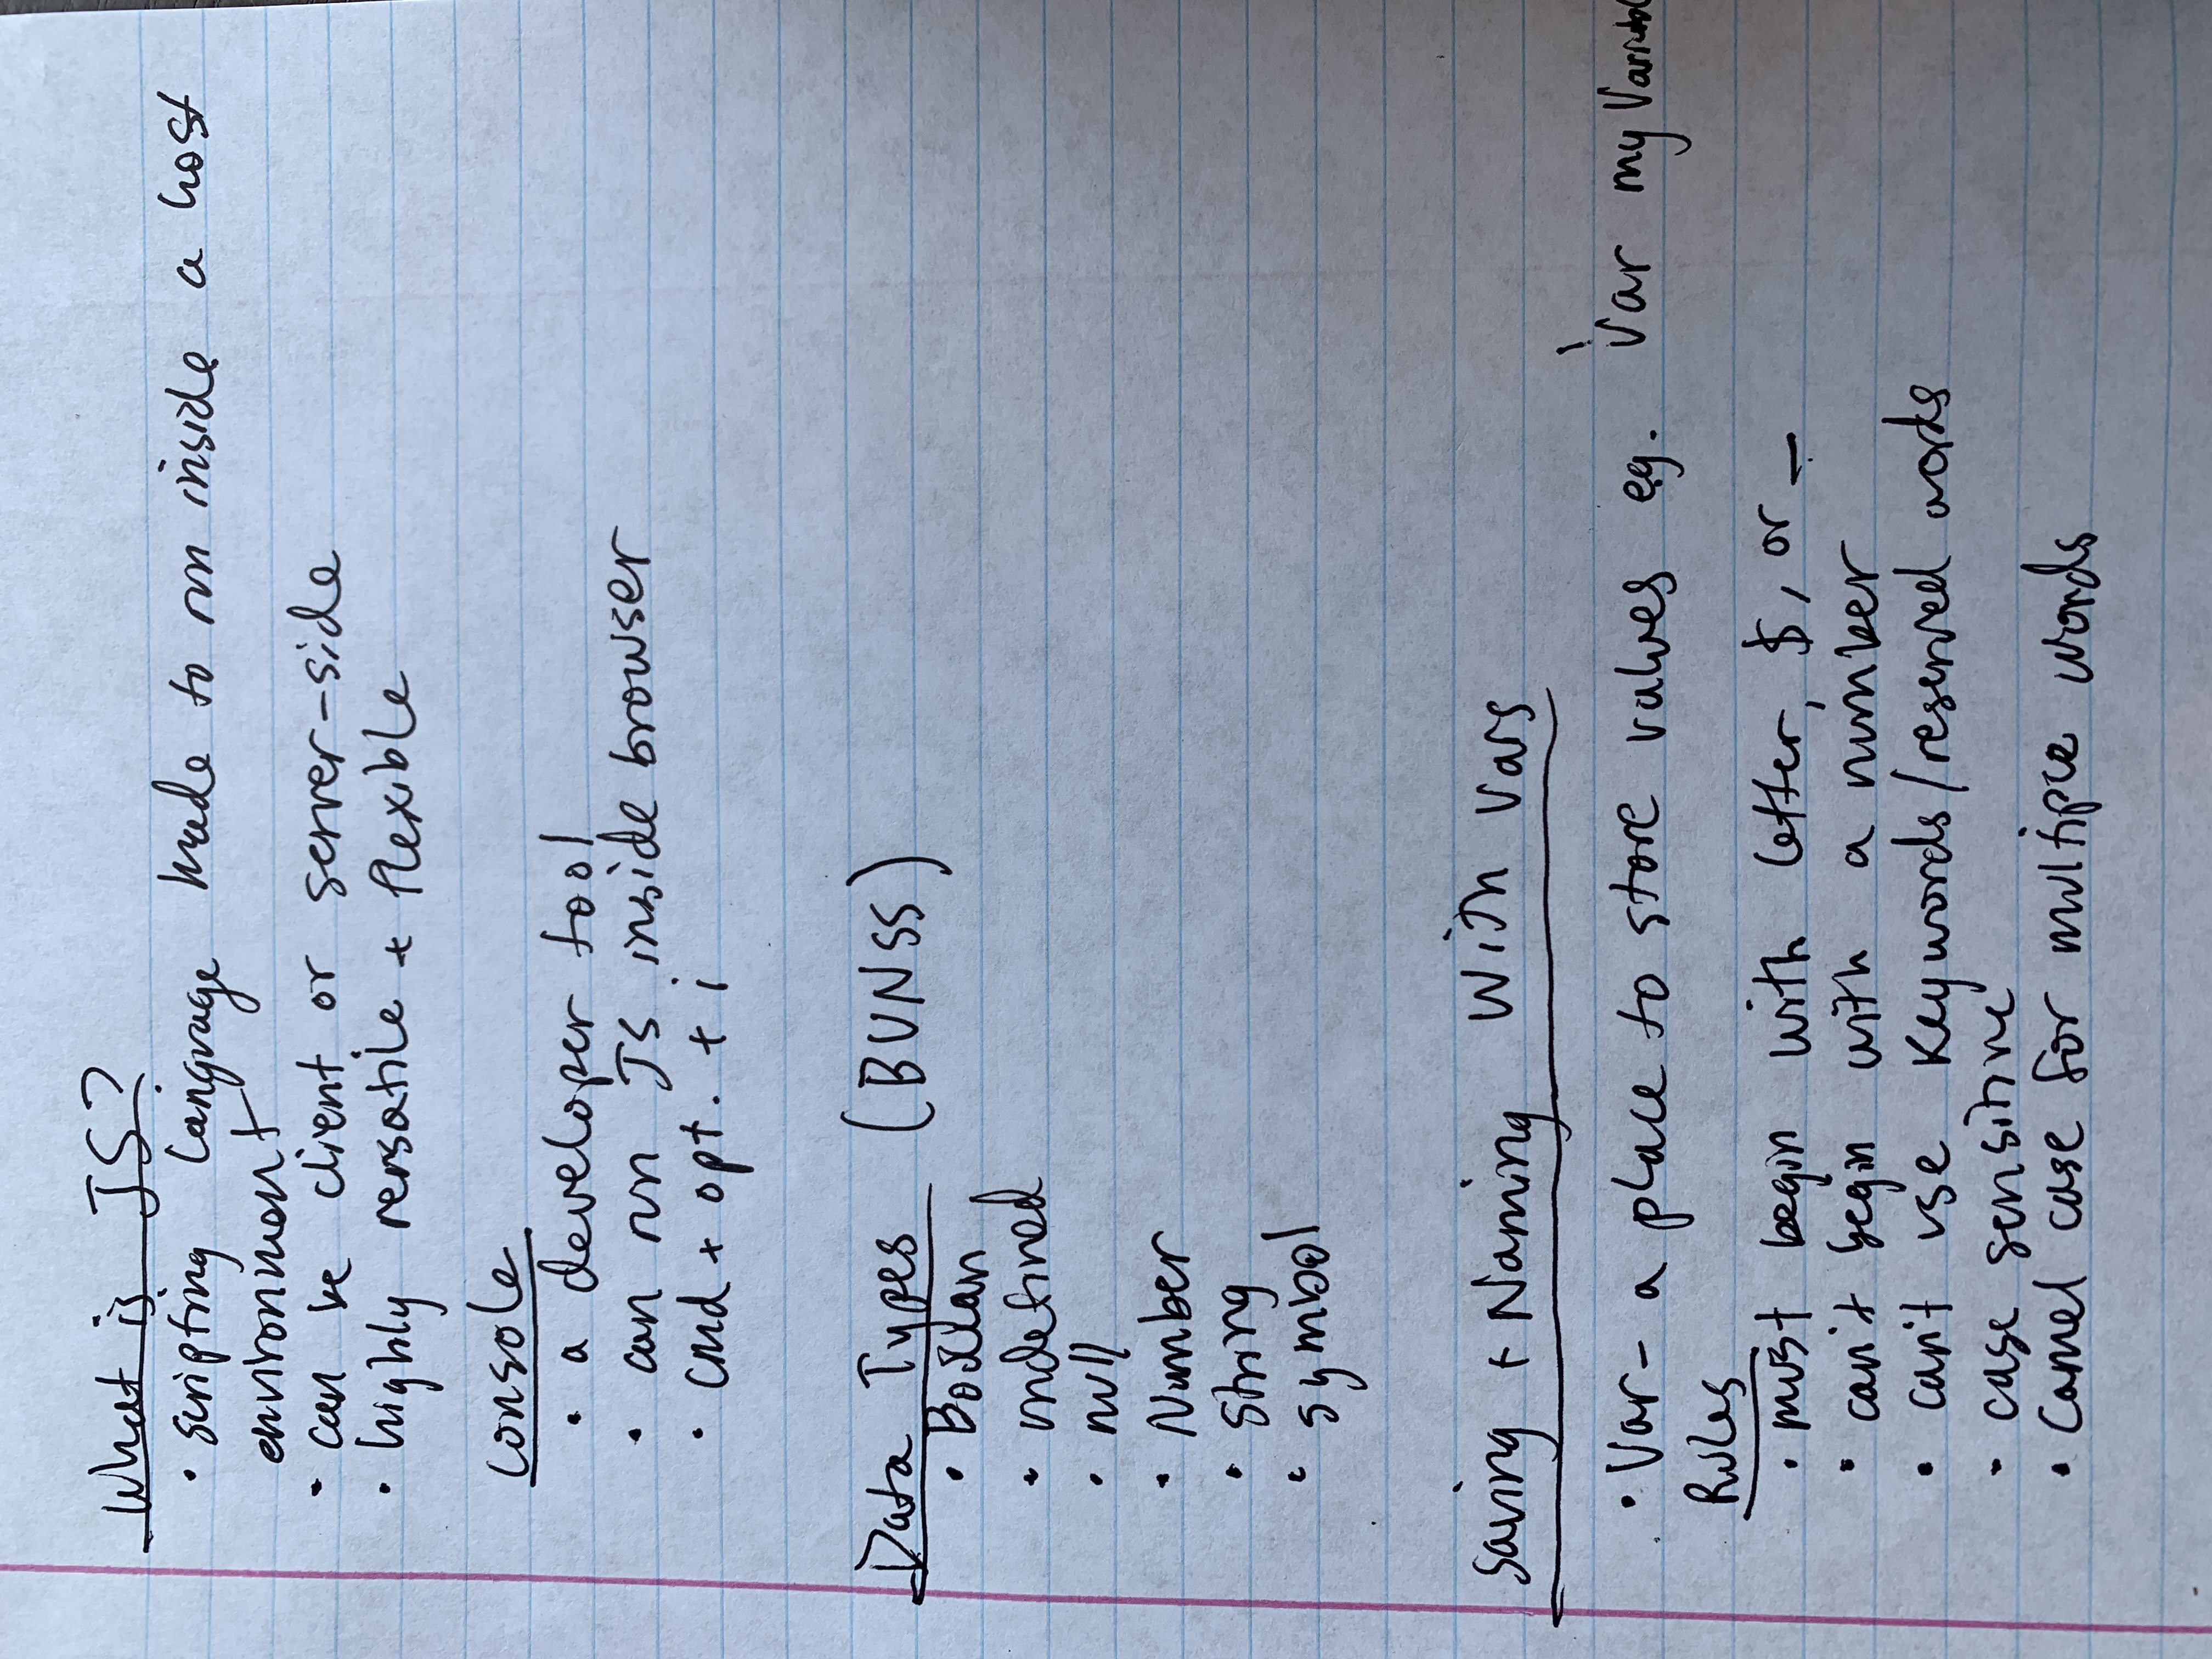 What is JS?
• scripting language made to run inside a host
environment
• can be client or server-side
• highly versatile + flexible
Console
• a developer tool
• can run JS inside browser
• cmd + opt. + i
Data Types (BUNSS)
• Boolean
• undefined
• null
• Number
• string
• symbol
Saving + Naming with Vars
• Var - a place to store values eg. var myVariabl
Rules
• must begin with letter, $, or _
• can't begin with a number
• can't use keywords/reserved words
• case sensitive
• Camel case for multiple words